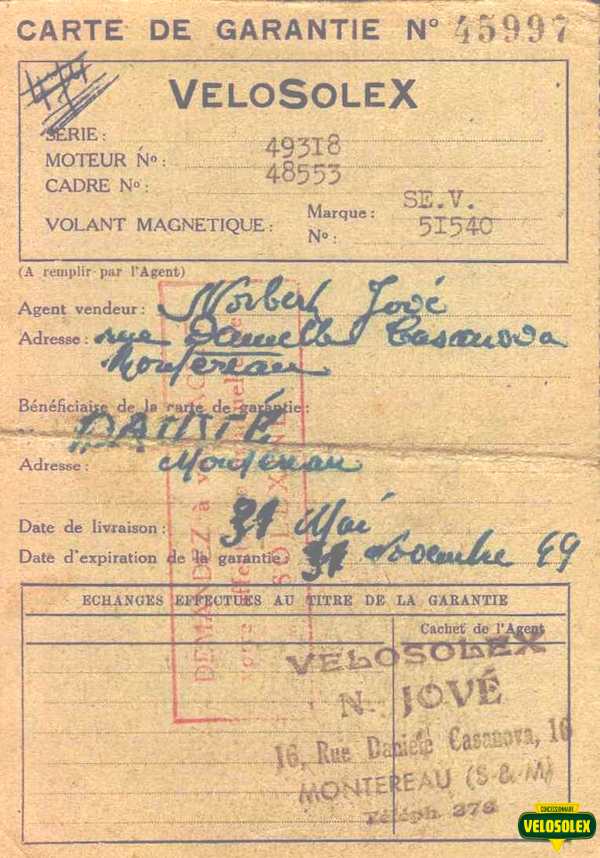 CARTE DE GARANTIE N° 45997
VELOSOLEX
SÉRIE :
MOTEUR No : 49318
CADRE No : 48553
VOLANT MAGNETIQUE : Marque : SE.V.
No : 51540
(A remplir par l'Agent)
Agent vendeur : Norbert Jové
Adresse : rue Danielle Casanova
Montereau
Bénéficiaire de la carte de garantie :
Adresse : Montereau
Date de livraison : 31 Mai
Date d'expiration de la garantie : 31 Novembre 49
ECHANGES EFFECTUES AU TITRE DE LA GARANTIE
Cachet de l'Agent
VELOSOLEX
N. JOVÉ
16, Rue Danièle Casanova, 16
MONTEREAU (S-&-M)
Téléph 376
DEMANDEZ à
SOLEXINE
CONCESSIONNAIRE
VELOSOLEX